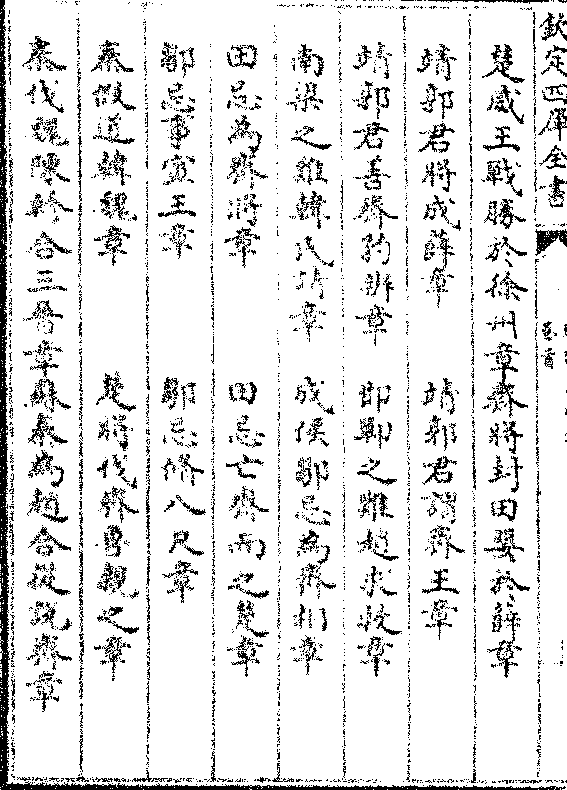 欽定四庫全書
楚威王戰勝於徐州章齊將封田嬰於薛章
靖郭君將成薛章 靖郭君謂齊王章
靖郭君善齊貌辨章 邯鄲之難趙求救章
南梁之難韓氏請章 成侯鄒忌為齊相章
田忌為齊將章 田忌亡齊而之楚章
鄒忌事宣王章 鄒忌脩八尺章
秦假道韓魏章 楚將伐齊魯親之章
秦伐魏陳軫合三晉章蘇秦為趙合從說齊章